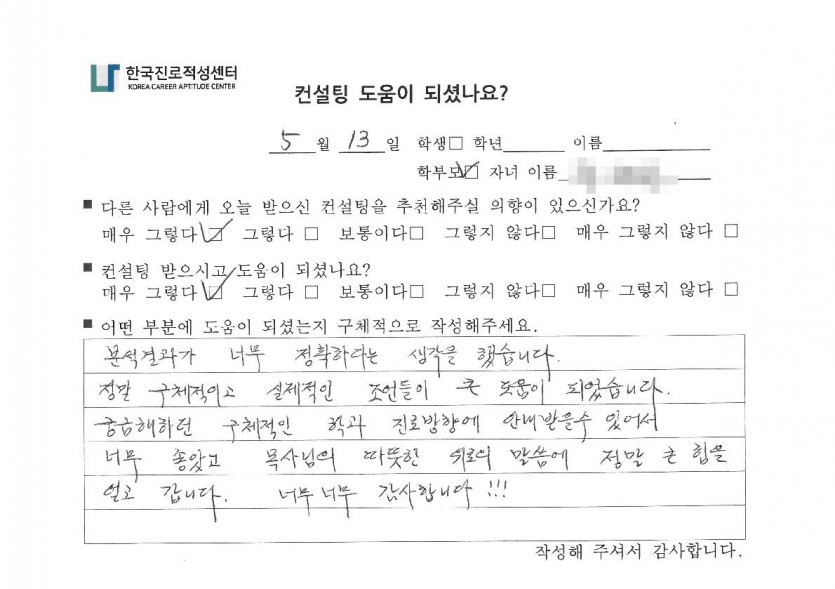 한국진로적성센터
KOREA CAREER APTITUDE CENTER
컨설팅 도움이 되셨나요?
5월 13일 학생□ 학년 이름
학부모☑ 자녀 이름
■ 다른 사람에게 오늘 받으신 컨설팅을 추천해주실 의향이 있으신가요?
매우 그렇다☑ 그렇다□ 보통이다□ 그렇지 않다□ 매우 그렇지 않다□
■ 컨설팅 받으시고 도움이 되셨나요?
매우 그렇다☑ 그렇다□ 보통이다□ 그렇지 않다□ 매우 그렇지 않다□
■ 어떤 부분에 도움이 되셨는지 구체적으로 작성해주세요.
분석결과가 너무 정확하다는 생각을 했습니다.
정말 구체적이고 실제적인 조언들이 큰 도움이 되었습니다.
궁금해하던 구체적인 학과 진로방향에 안내받을수 있어서
너무 좋았고 목사님의 따뜻한 위로의 말씀에 정말 큰 힘을
얻고 갑니다. 너무너무 감사합니다!!!
작성해 주셔서 감사합니다.